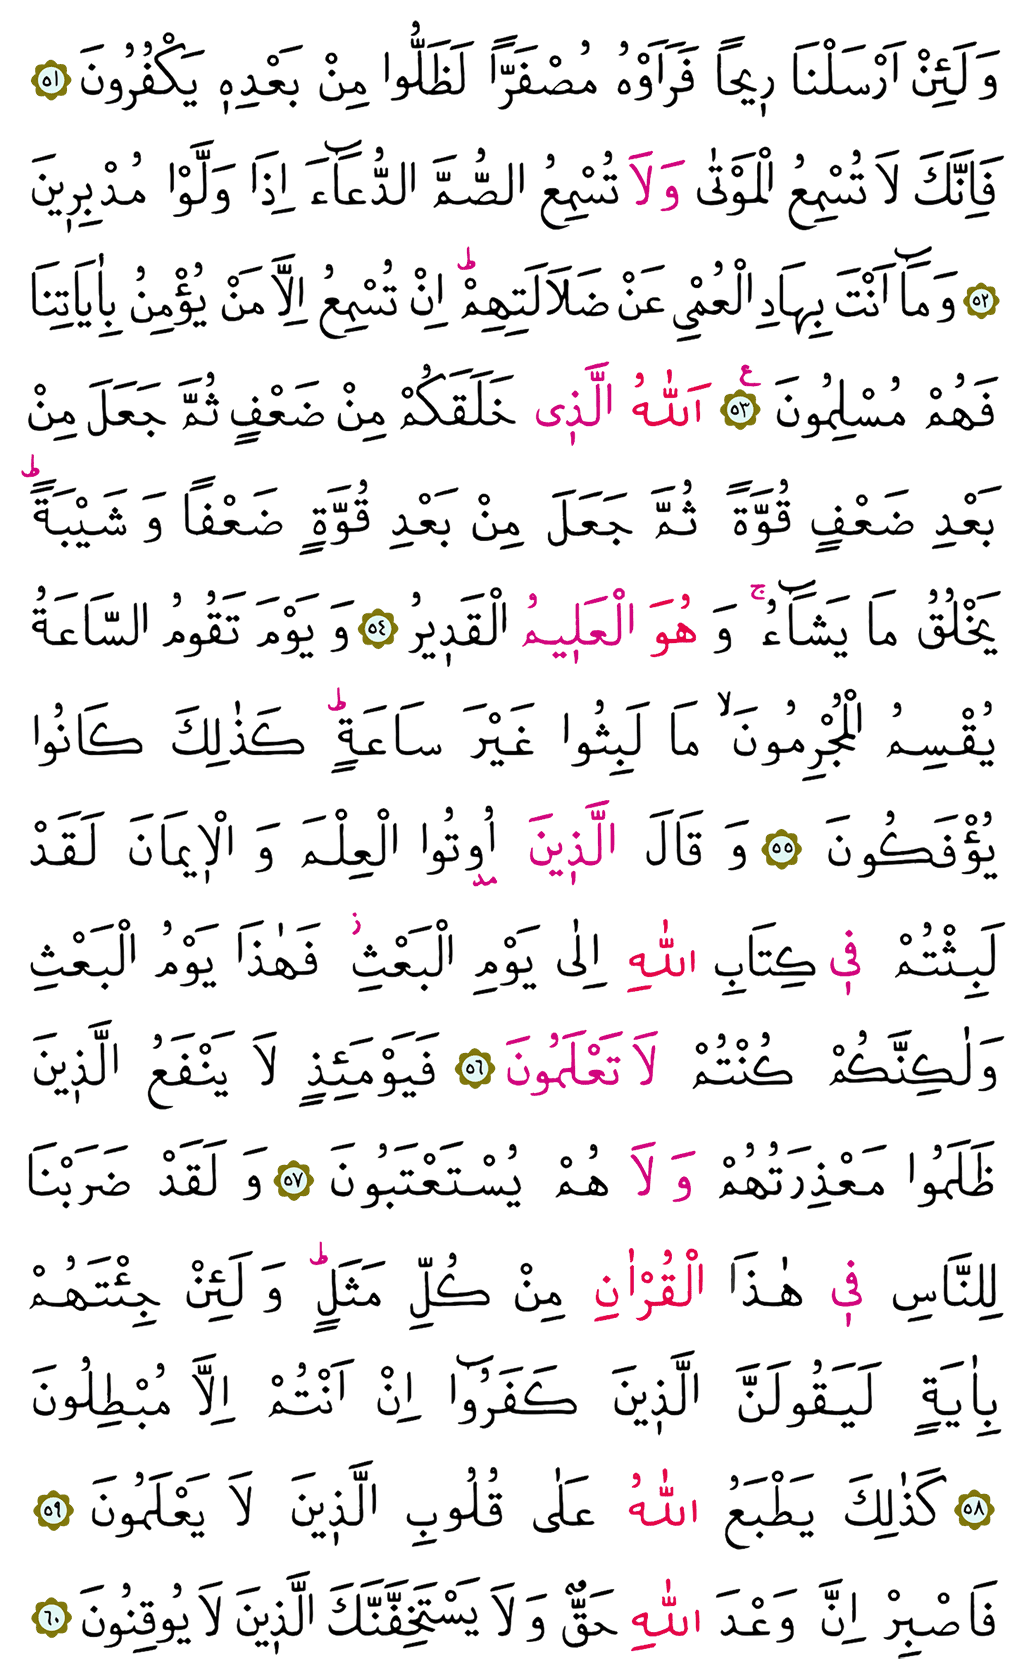 وَلَئِنْ اَرْسَلْنَا رٖيحاً فَرَاَوْهُ مُصْفَرًّا لَظَلُّوا مِنْ بَعْدِهٖ يَكْفُرُونَ ﴿٥١﴾
فَاِنَّكَ لَا تُسْمِعُ الْمَوْتٰى وَلَا تُسْمِعُ الصُّمَّ الدُّعَٓاءَ اِذَا وَلَّوْا مُدْبِرٖينَ
﴿٥٢﴾ وَمَٓا اَنْتَ بِهَادِ الْعُمْيِ عَنْ ضَلَالَتِهِمْؕ اِنْ تُسْمِعُ اِلَّا مَنْ يُؤْمِنُ بِاٰيَاتِنَا
فَهُمْ مُسْلِمُونَ ﴿٥٣﴾ ع اَللّٰهُ الَّذٖى خَلَقَكُمْ مِنْ ضَعْفٍ ثُمَّ جَعَلَ مِنْ
بَعْدِ ضَعْفٍ قُوَّةً ثُمَّ جَعَلَ مِنْ بَعْدِ قُوَّةٍ ضَعْفاً وَ شَيْبَةًؕ
يَخْلُقُ مَا يَشَٓاءُۚ وَ هُوَ الْعَلٖيمُ الْقَدٖيرُ ﴿٥٤﴾ وَ يَوْمَ تَقُومُ السَّاعَةُ
يُقْسِمُ الْمُجْرِمُونَۙ مَا لَبِثُوا غَيْرَ سَاعَةٍؕ كَذٰلِكَ كَانُوا
يُؤْفَكُونَ ﴿٥٥﴾ وَ قَالَ الَّذٖينَ اُوتُوا مد الْعِلْمَ وَ الْاٖيمَانَ لَقَدْ
لَبِثْتُمْ فٖي كِتَابِ اللّٰهِ اِلٰى يَوْمِ الْبَعْثِؗ فَهٰذَا يَوْمُ الْبَعْثِ
وَلٰكِنَّكُمْ كُنْتُمْ لَا تَعْلَمُونَ ﴿٥٦﴾ فَيَوْمَئِذٍ لَا يَنْفَعُ الَّذٖينَ
ظَلَمُوا مَعْذِرَتُهُمْ وَ لَا هُمْ يُسْتَعْتَبُونَ ﴿٥٧﴾ وَ لَقَدْ ضَرَبْنَا
لِلنَّاسِ فٖي هٰذَا الْقُرْاٰنِ مِنْ كُلِّ مَثَلٍؕ وَ لَئِنْ جِئْتَهُمْ
بِاٰيَةٍ لَيَقُولَنَّ الَّذٖينَ كَفَرُٓوا اِنْ اَنْتُمْ اِلَّا مُبْطِلُونَ
﴿٥٨﴾ كَذٰلِكَ يَطْبَعُ اللّٰهُ عَلٰى قُلُوبِ الَّذٖينَ لَا يَعْلَمُونَ ﴿٥٩﴾
فَاصْبِرْ اِنَّ وَعْدَ اللّٰهِ حَقٌّ وَ لَا يَسْتَخِفَّنَّكَ الَّذٖينَ لَا يُوقِنُونَ ﴿٦٠﴾